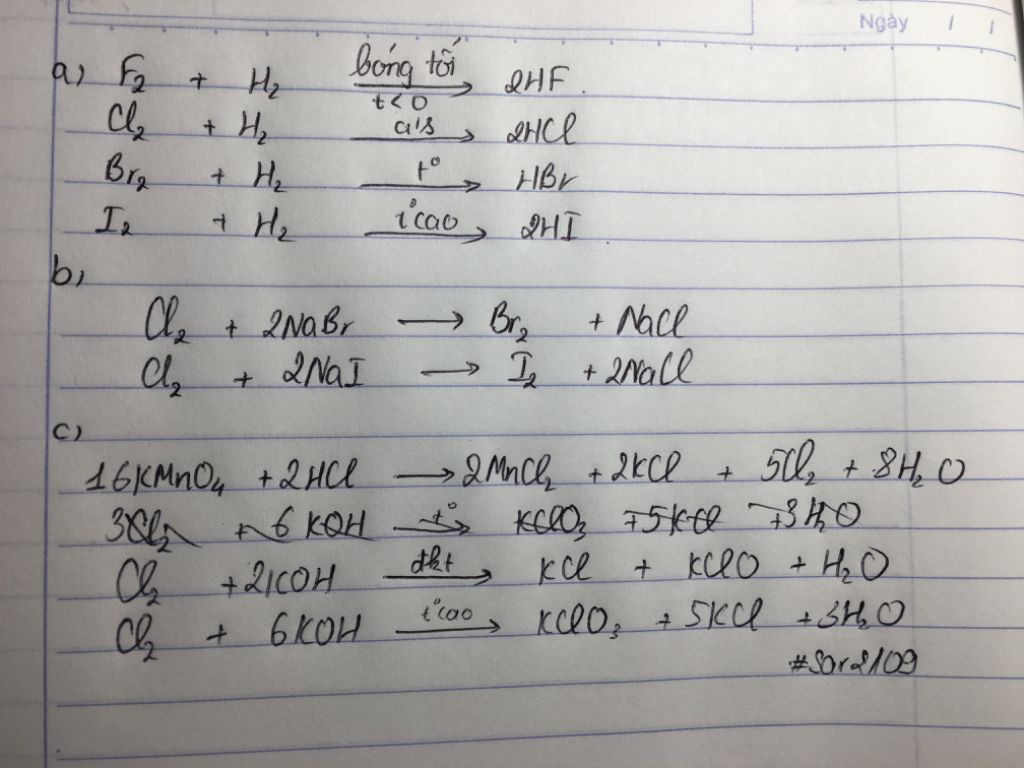 Ngày / /
a) F₂ + H₂ bóng tối → t<0 2HF.
Cl₂ + H₂ a's → 2HCl
Br₂ + H₂ t° → HBr
I₂ + H₂ t°cao → 2HI.
b)
Cl₂ + 2NaBr → Br₂ + NaCl
Cl₂ + 2NaI → I₂ + 2NaCl
c)
16KMnO₄ + 2HCl → 2MnCl₂ + 2KCl + 5Cl₂ + 8H₂O
3Cl₂ + 6KOH t° → KClO₃ + 5KCl + 3H₂O
Cl₂ + 2KOH đkt → KCl + KClO + H₂O
Cl₂ + 6KOH t°cao → KClO₃ + 5KCl + 3H₂O